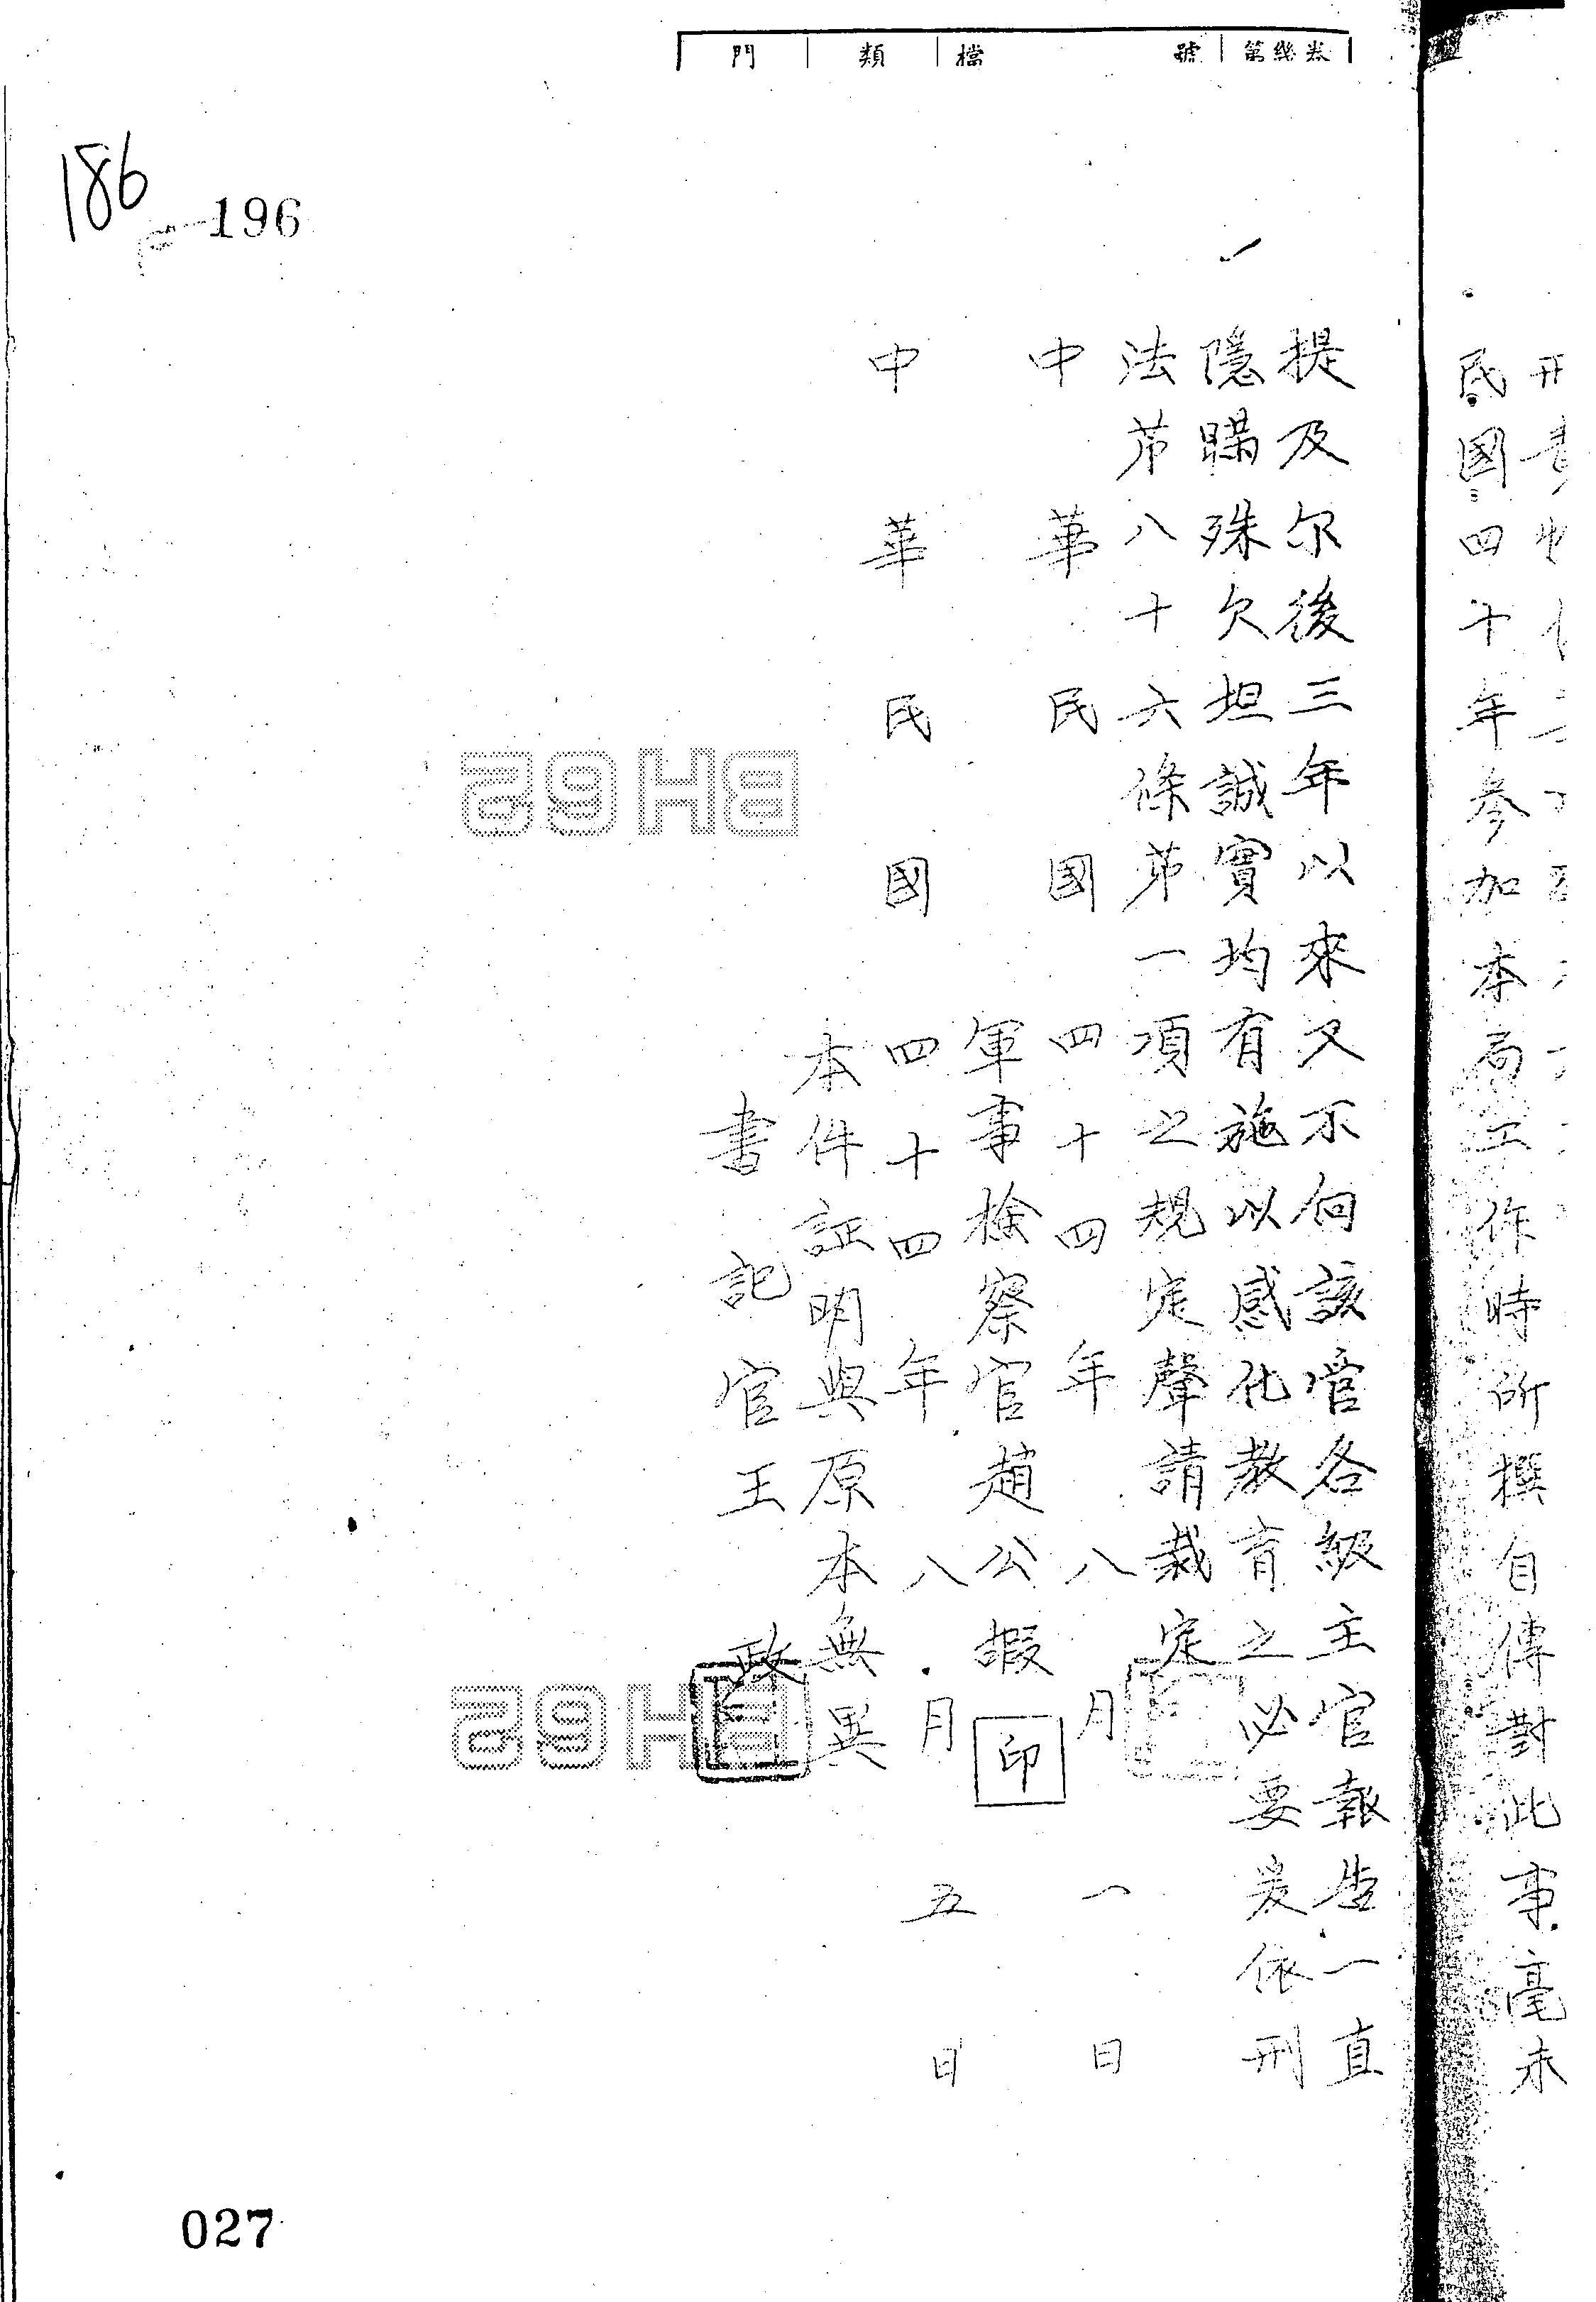 門 類 檔 號 第幾卷
186
196
民國四十年參加本局工作時所撰自傳對此事毫未
提及尔後三年以來又不向該管各級主官報告一直
隱瞞殊欠坦誠實均有施以感化教育之必要爰依刑
法苐八十六條苐一項之規定聲請裁定
中華民國四十四年八月一日
軍事檢察官趙公嘏 印
中華民國四十四年八月五日
本件証明與原本無異
書記官王 政
BH62
BH62
027